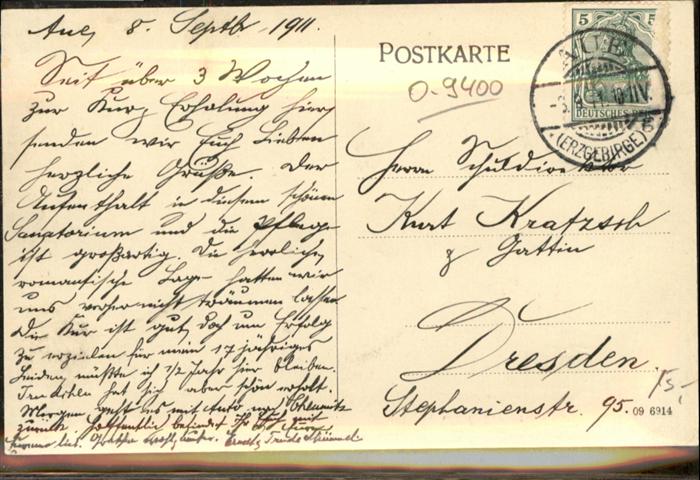 Aue, 8. Septbr. 1911.
Seit über 3 Wochen
zur Kur & Erholung hier,
senden wir Euch Lieben
herzliche Grüße. Der
Aufenthalt in diesem schönen
Sanatorium und die Pflege
ist großartig. Die herrliche,
romantische Lage hatten wir
uns vorher nicht träumen lassen
Die Kur ist gut, doch um Erfolg
zu erzielen für mein 17 jähriges
Leiden, müßte ich 1/2 Jahr hier bleiben.
hat sich aber schön erholt.
Morgen geht's mit Auto nach Chemnitz
zurück. Hoffentlich befindet Ihr
POSTKARTE
O-9400
5 5
DEUTSCHES REICH
(ERZGEBIRGE)
Herrn Schuldirektor
Kurt Kratzsch
& Gattin
Dresden.
Stephanienstr. 95.
15,-
09 6914